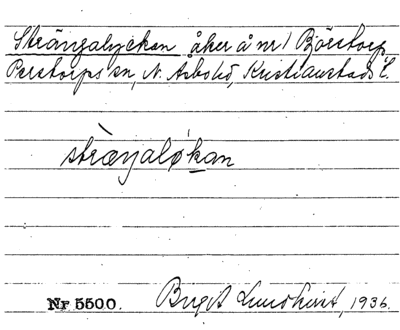 Strängalyckan åker å nr 1 Björstorp,
Perstorps sn, N. Åsbo hd, Kristianstads l.
stræŋaløkan
Nr 5500. Birgit Lundkvist, 1936.